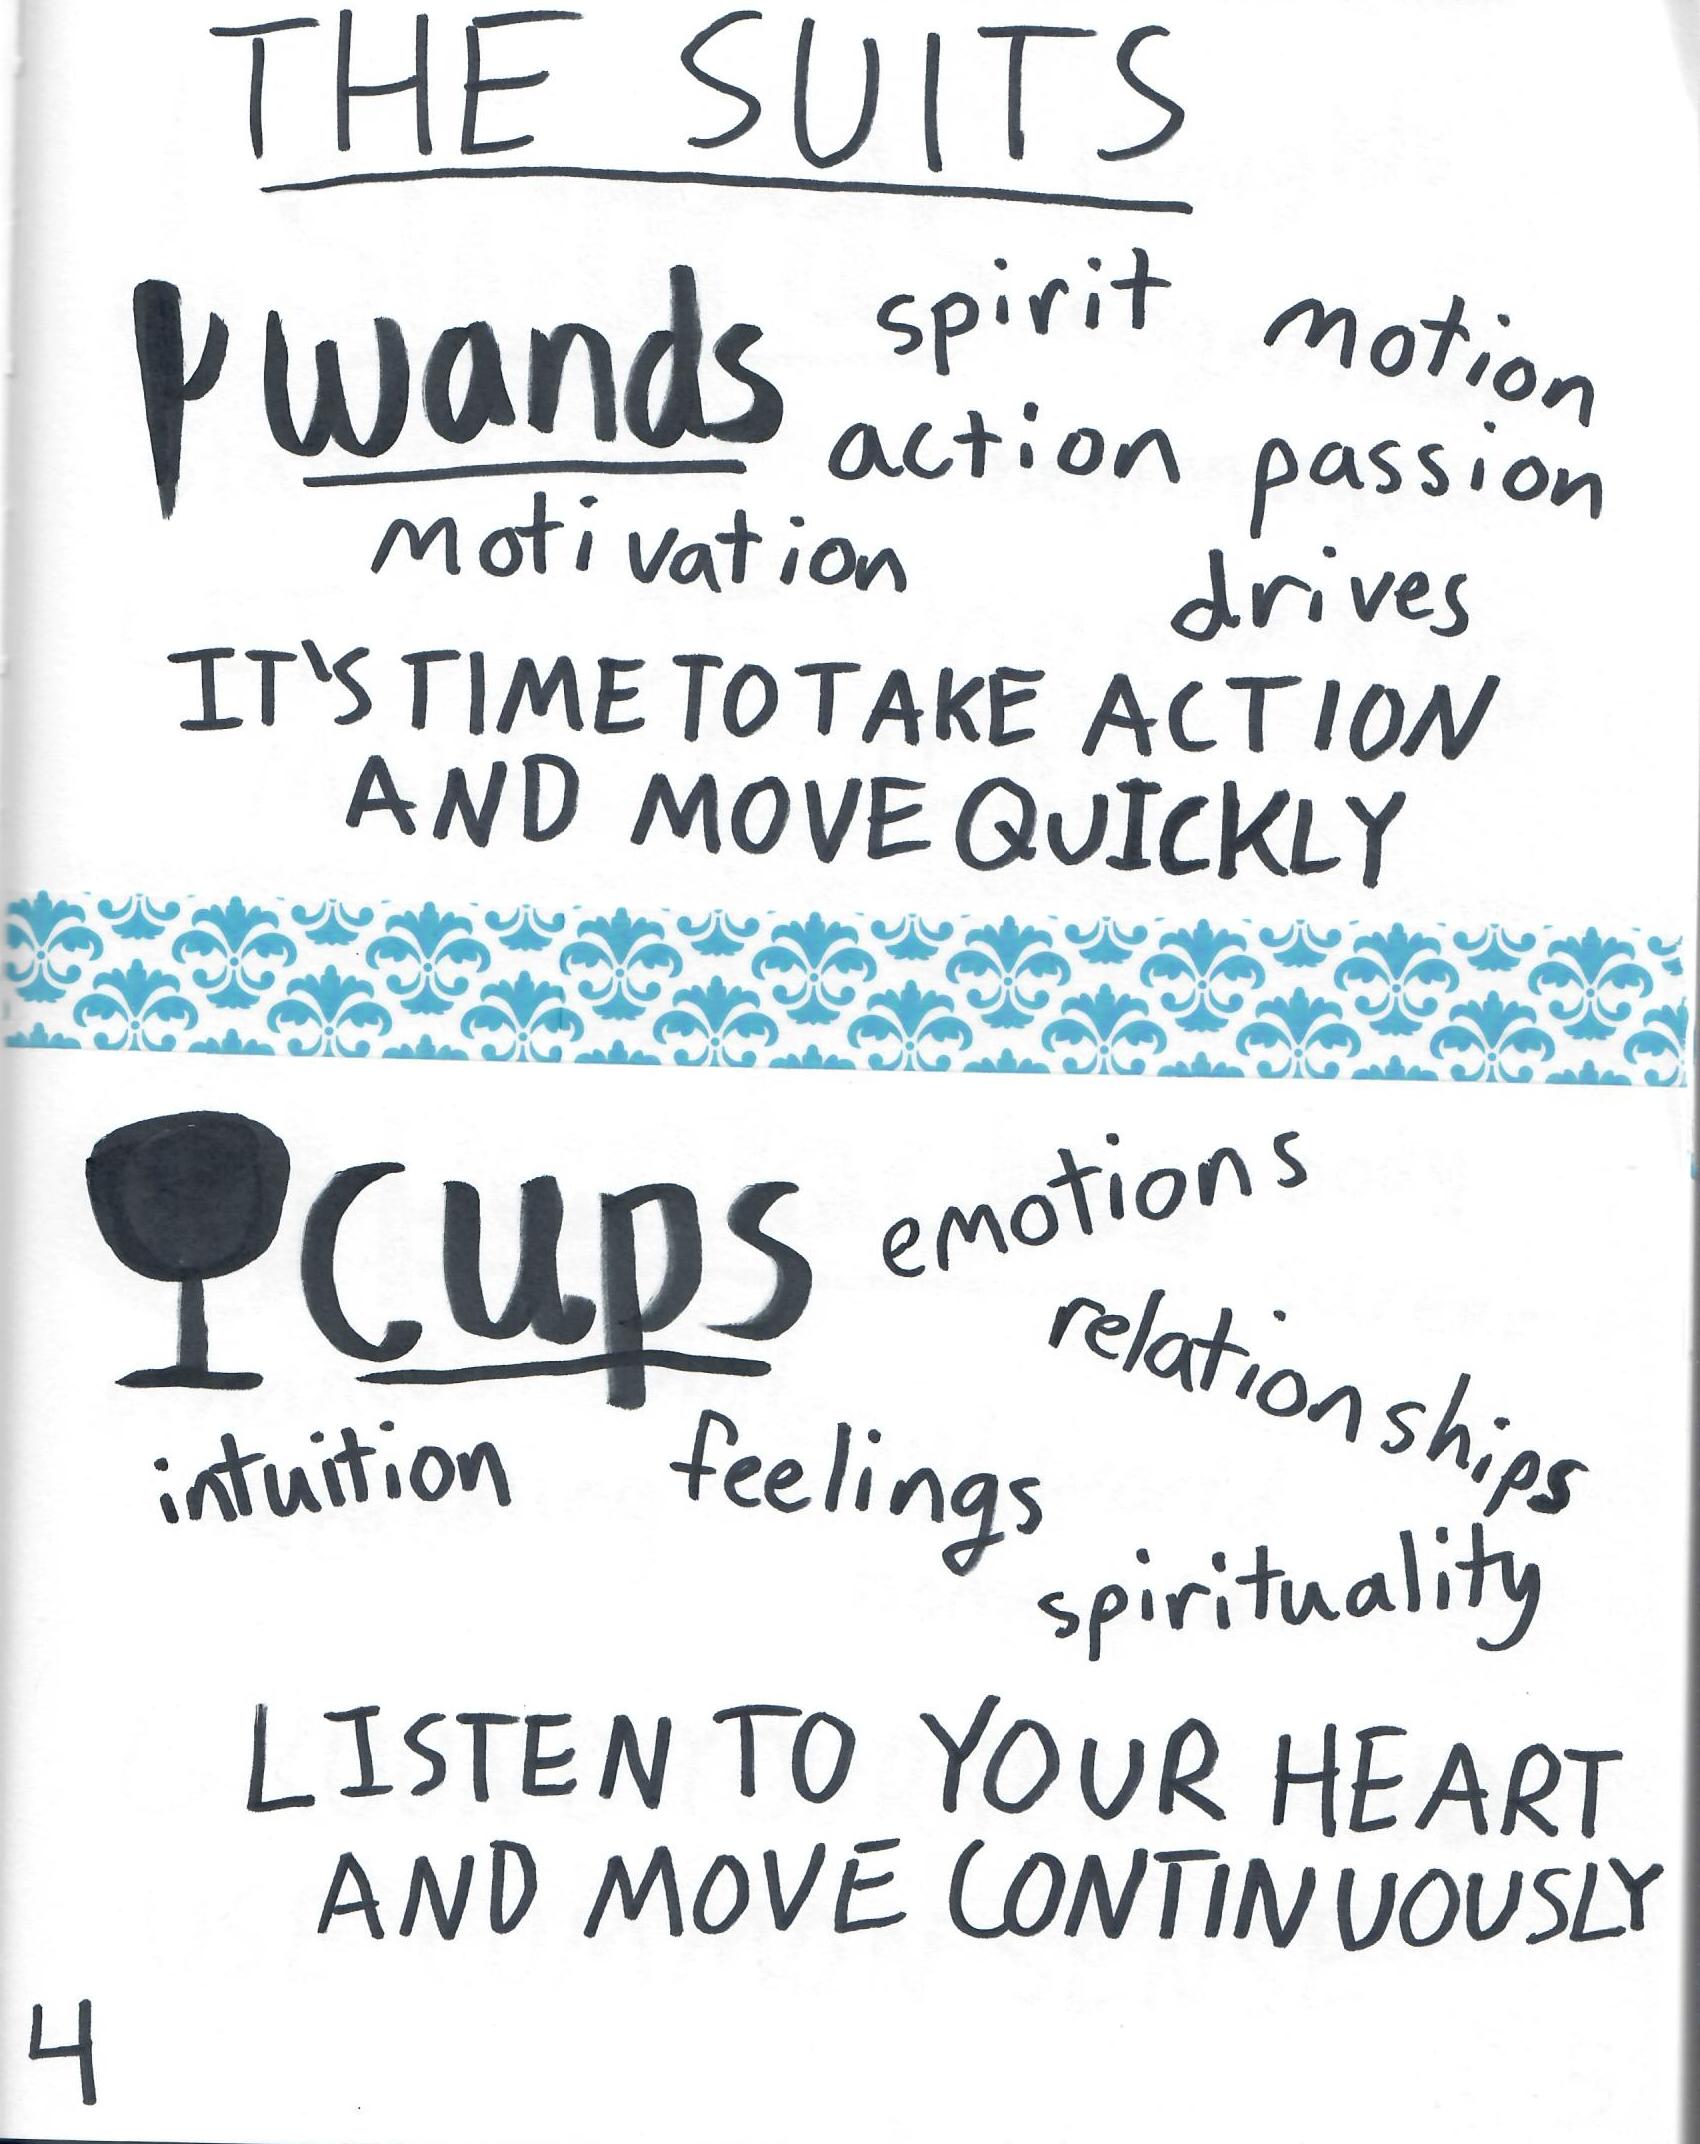 THE SUITS
wands
spirit motion
action passion
motivation drives
IT'S TIME TO TAKE ACTION
AND MOVE QUICKLY
cups
emotions
relationships
intuition feelings
spirituality
LISTEN TO YOUR HEART
AND MOVE CONTINUOUSLY
4